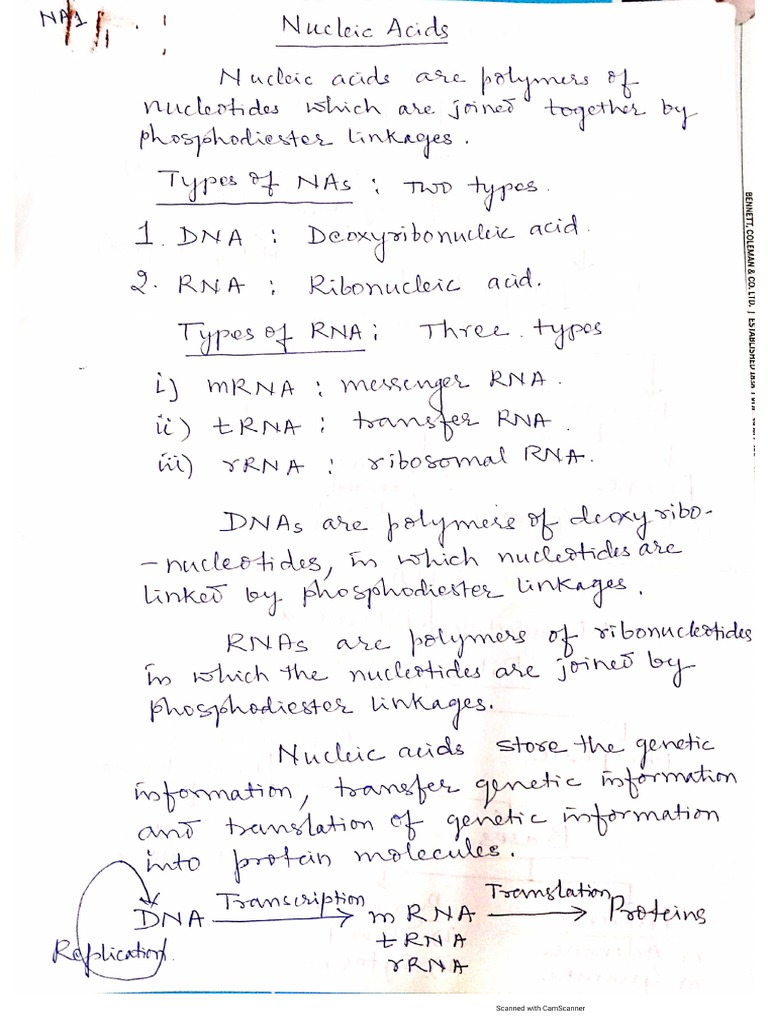 NA1
Nucleic Acids
Nucleic acids are polymers of
nucleotides which are joined together by
phosphodiester linkages.
Types of NAs : Two types.
1. DNA : Deoxyribonucleic acid.
2. RNA : Ribonucleic acid.
Types of RNA : Three types
i) mRNA : messenger RNA.
ii) tRNA : transfer RNA.
iii) rRNA : ribosomal RNA.
DNAs are polymers of deoxyribo-
-nucleotides, in which nucleotides are
linked by phosphodiester linkages.
RNAs are polymers of ribonucleotides
in which the nucleotides are joined by
phosphodiester linkages.
Nucleic acids store the genetic
information, transfer genetic information
and translation of genetic information
into protein molecules.
Transcription Translation
DNA → mRNA → Proteins
tRNA
Replication
rRNA
BENNETT, COLEMAN & CO. LTD. | ESTABLISHED
Scanned with CamScanner